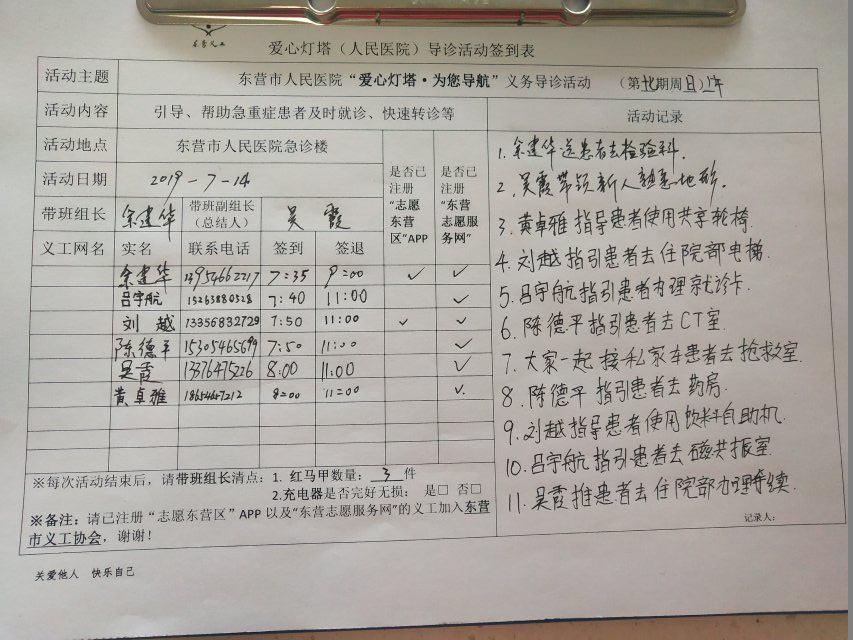 东营义工
爱心灯塔（人民医院）导诊活动签到表
活动主题 东营市人民医院“爱心灯塔·为您导航”义务导诊活动 （第 期周日）
活动内容 引导、帮助急重症患者及时就诊、快速转诊等 活动记录
活动地点 东营市人民医院急诊楼 是否已注册“志愿东营区”APP 是否已注册“东营志愿服务网”
活动日期 2019-7-14
带班组长 余建华 带班副组长（总结人） 吴霞
义工网名 实名 联系电话 签到 签退
余建华 13954662217 7:35 9:00 ✓ ✓
吕宇航 15263880328 7:40 11:00 ✓
刘越 13356832729 7:50 11:00 ✓ ✓
陈德平 15305465699 7:50 11:00 ✓
吴霞 13376475226 8:00 11:00 ✓
黄卓雅 18654647212 8:00 11:00 ✓
1. 余建华送患者去检验科.
2. 吴霞带领新人熟悉地形.
3. 黄卓雅指导患者使用共享轮椅.
4. 刘越指引患者去住院部电梯.
5. 吕宇航指引患者办理就诊卡.
6. 陈德平指引患者去CT室.
7. 大家一起接私家车患者去抢救室.
8. 陈德平指引患者去药房.
9. 刘越指导患者使用饮料自助机.
10. 吕宇航指引患者去磁共振室.
11. 吴霞推患者去住院部办理手续.
记录人:
※每次活动结束后，请带班组长清点：1. 红马甲数量：3件
2.充电器是否完好无损： 是□ 否□
※备注：请已注册“志愿东营区”APP 以及“东营志愿服务网”的义工加入东营
市义工协会，谢谢！
关爱他人 快乐自己